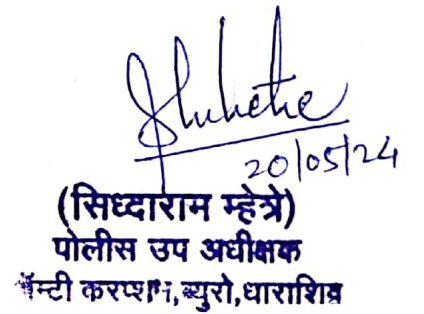 20/05/24
(सिध्दाराम म्हेत्रे)
पोलीस उप अधीक्षक
ॲन्टी करप्शन,ब्युरो,धाराशिव